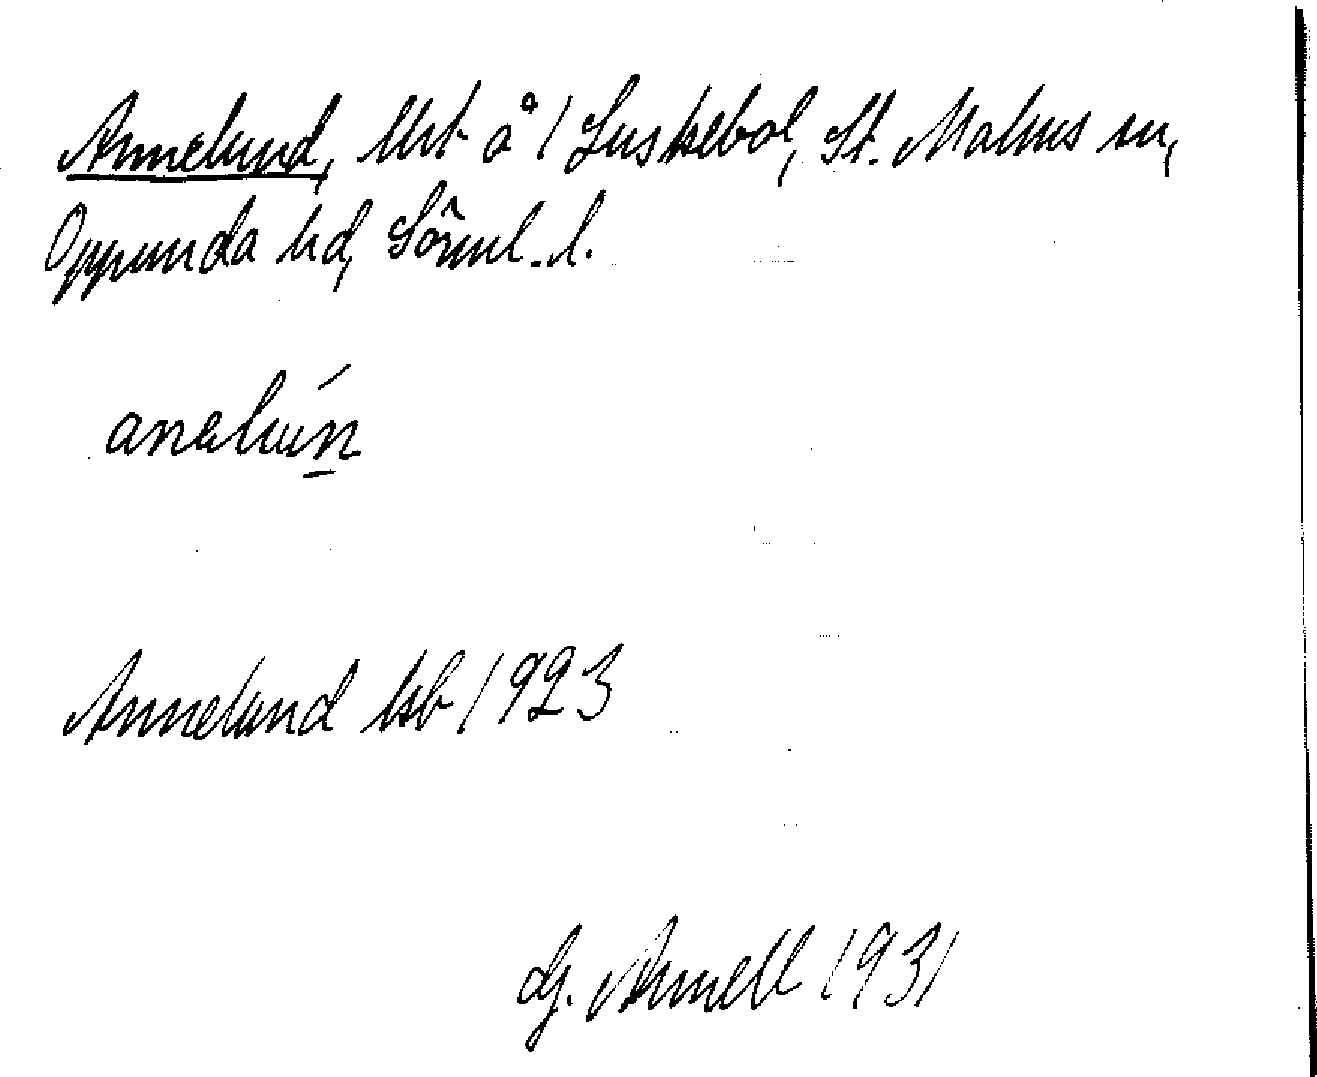 Annelund, lht å 1 Luskebol, St. Malms sn,
Oppunda hd, Söml. l.
anelún
Annelund lsb 1923
G. Arnell 1931